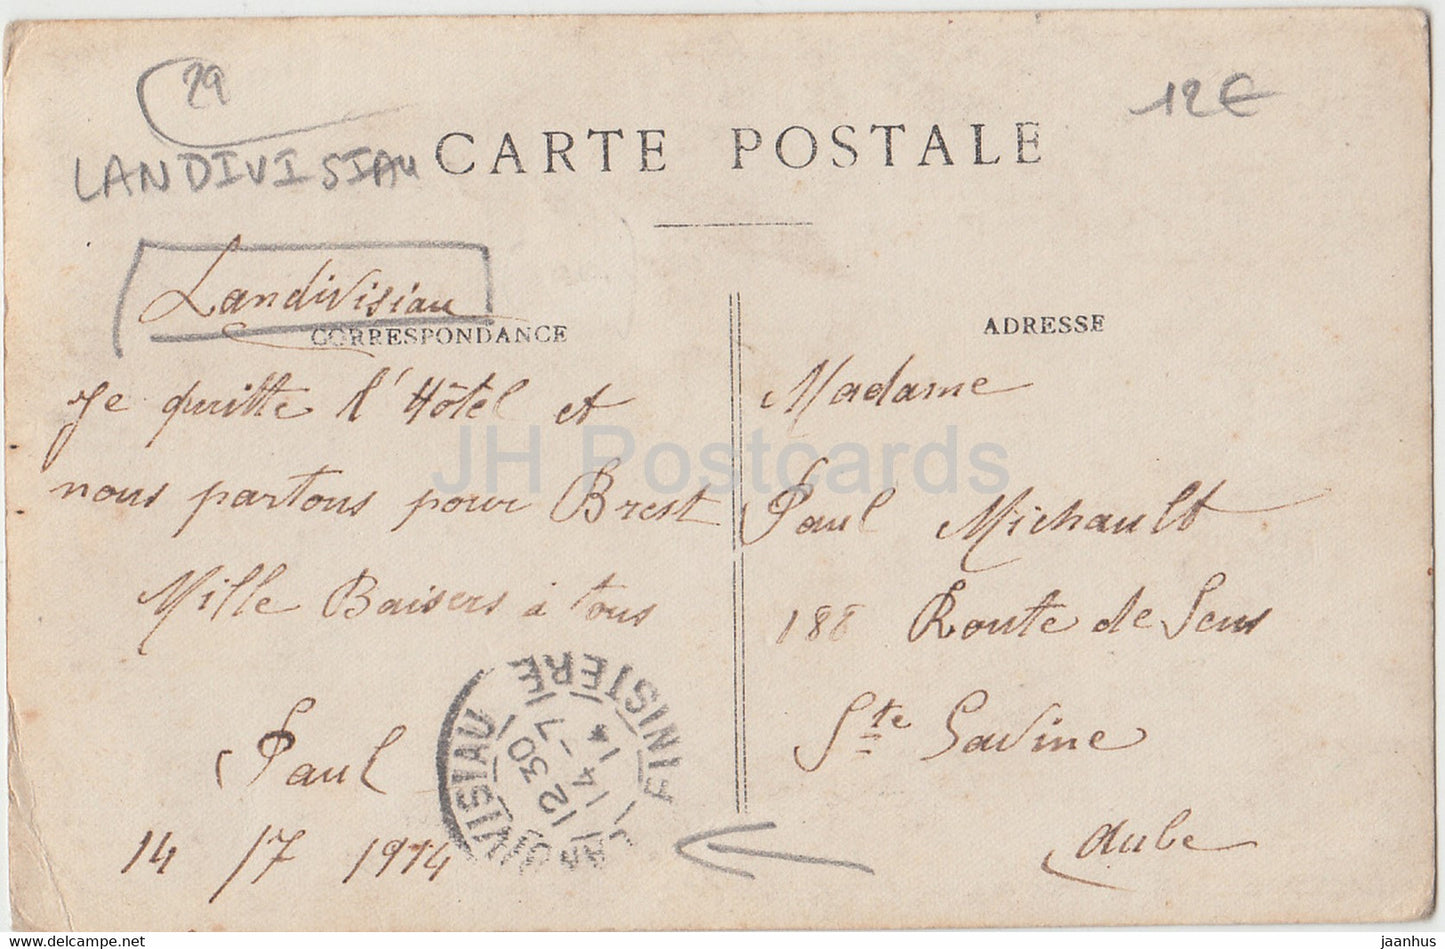 29
12€
LANDIVISIAU
CARTE POSTALE
Landivisiau
CORRESPONDANCE
Je quitte l'Hôtel et
nous partons pour Brest
Mille Baisers à tous
Paul
14 / 7 1914
ADRESSE
Madame
Paul Michault
188 Route de Sens
Ste Savine
Aube
LANDIVISIAU
FINISTERE
12 30
14 - 7
14
JH Postcards
www.delcampe.net
jaanhus